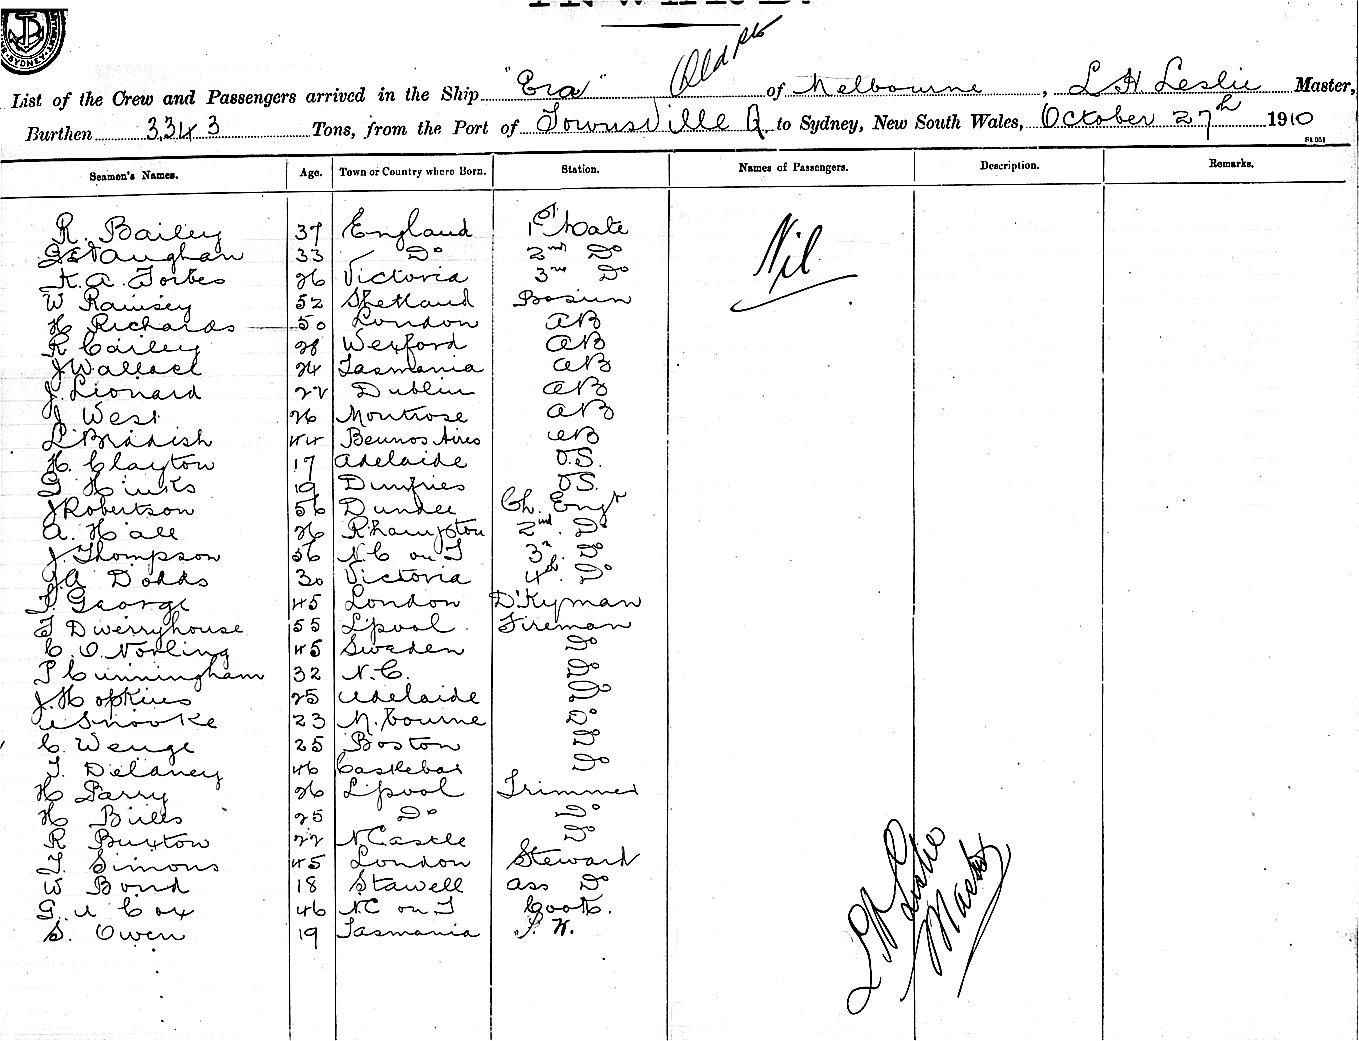 INWARD.
SYDNEY
List of the Crew and Passengers arrived in the Ship "Era" of Melbourne, L H Leslie Master,
Burthen 3,343 Tons, from the Port of Townsville Q to Sydney, New South Wales, October 27th 1910
Seamen's Names. Age. Town or Country where Born. Station. Names of Passengers. Description. Remarks.
R. Bailey 37 England 1st Mate
Vaughan 33 Do 2nd Do
K. A. Forbes 26 Victoria 3rd Do
W Ramsey 52 Shetland Bosun
H Richards 50 London AB
R Cailey 28 Wexford AB
J Wallace 24 Tasmania AB
J. Lionard 22 Dublin AB
J West 26 Montrose AB
44 Beunos Aires AB
H. Clayton 17 Adelaide O.S.
G Hinks 19 Dumfries OS.
J Robertson 56 Dundee Ch. Engr
A. Hall 26 R.hampton 2nd. Do
J. Thompson 56 N C on T 3rd. Do
A Dodds 30 Victoria 4th. Do
George 45 London D'Kyman
Dwerryhouse 55 L'pool. Fireman
C. O. Norling 45 Sweden Do
P Cunningham 32 N. C. Do
J. Hopkins 25 Adelaide Do
Snooke 23 M.bourne Do
C. Wenge 25 Boston Do
T. Delaney 46 Castlebar Do
H Parry 26 L'pool Trimmer
H Bills 25 Do Do
R Buxton 22 N Castle Do
T. Simons 45 London Steward
W Bond 18 Stawell Ass Do
G A Cox 46 N C on T Cook.
S. Owen 19 Tasmania
Nil
L H Leslie
Master